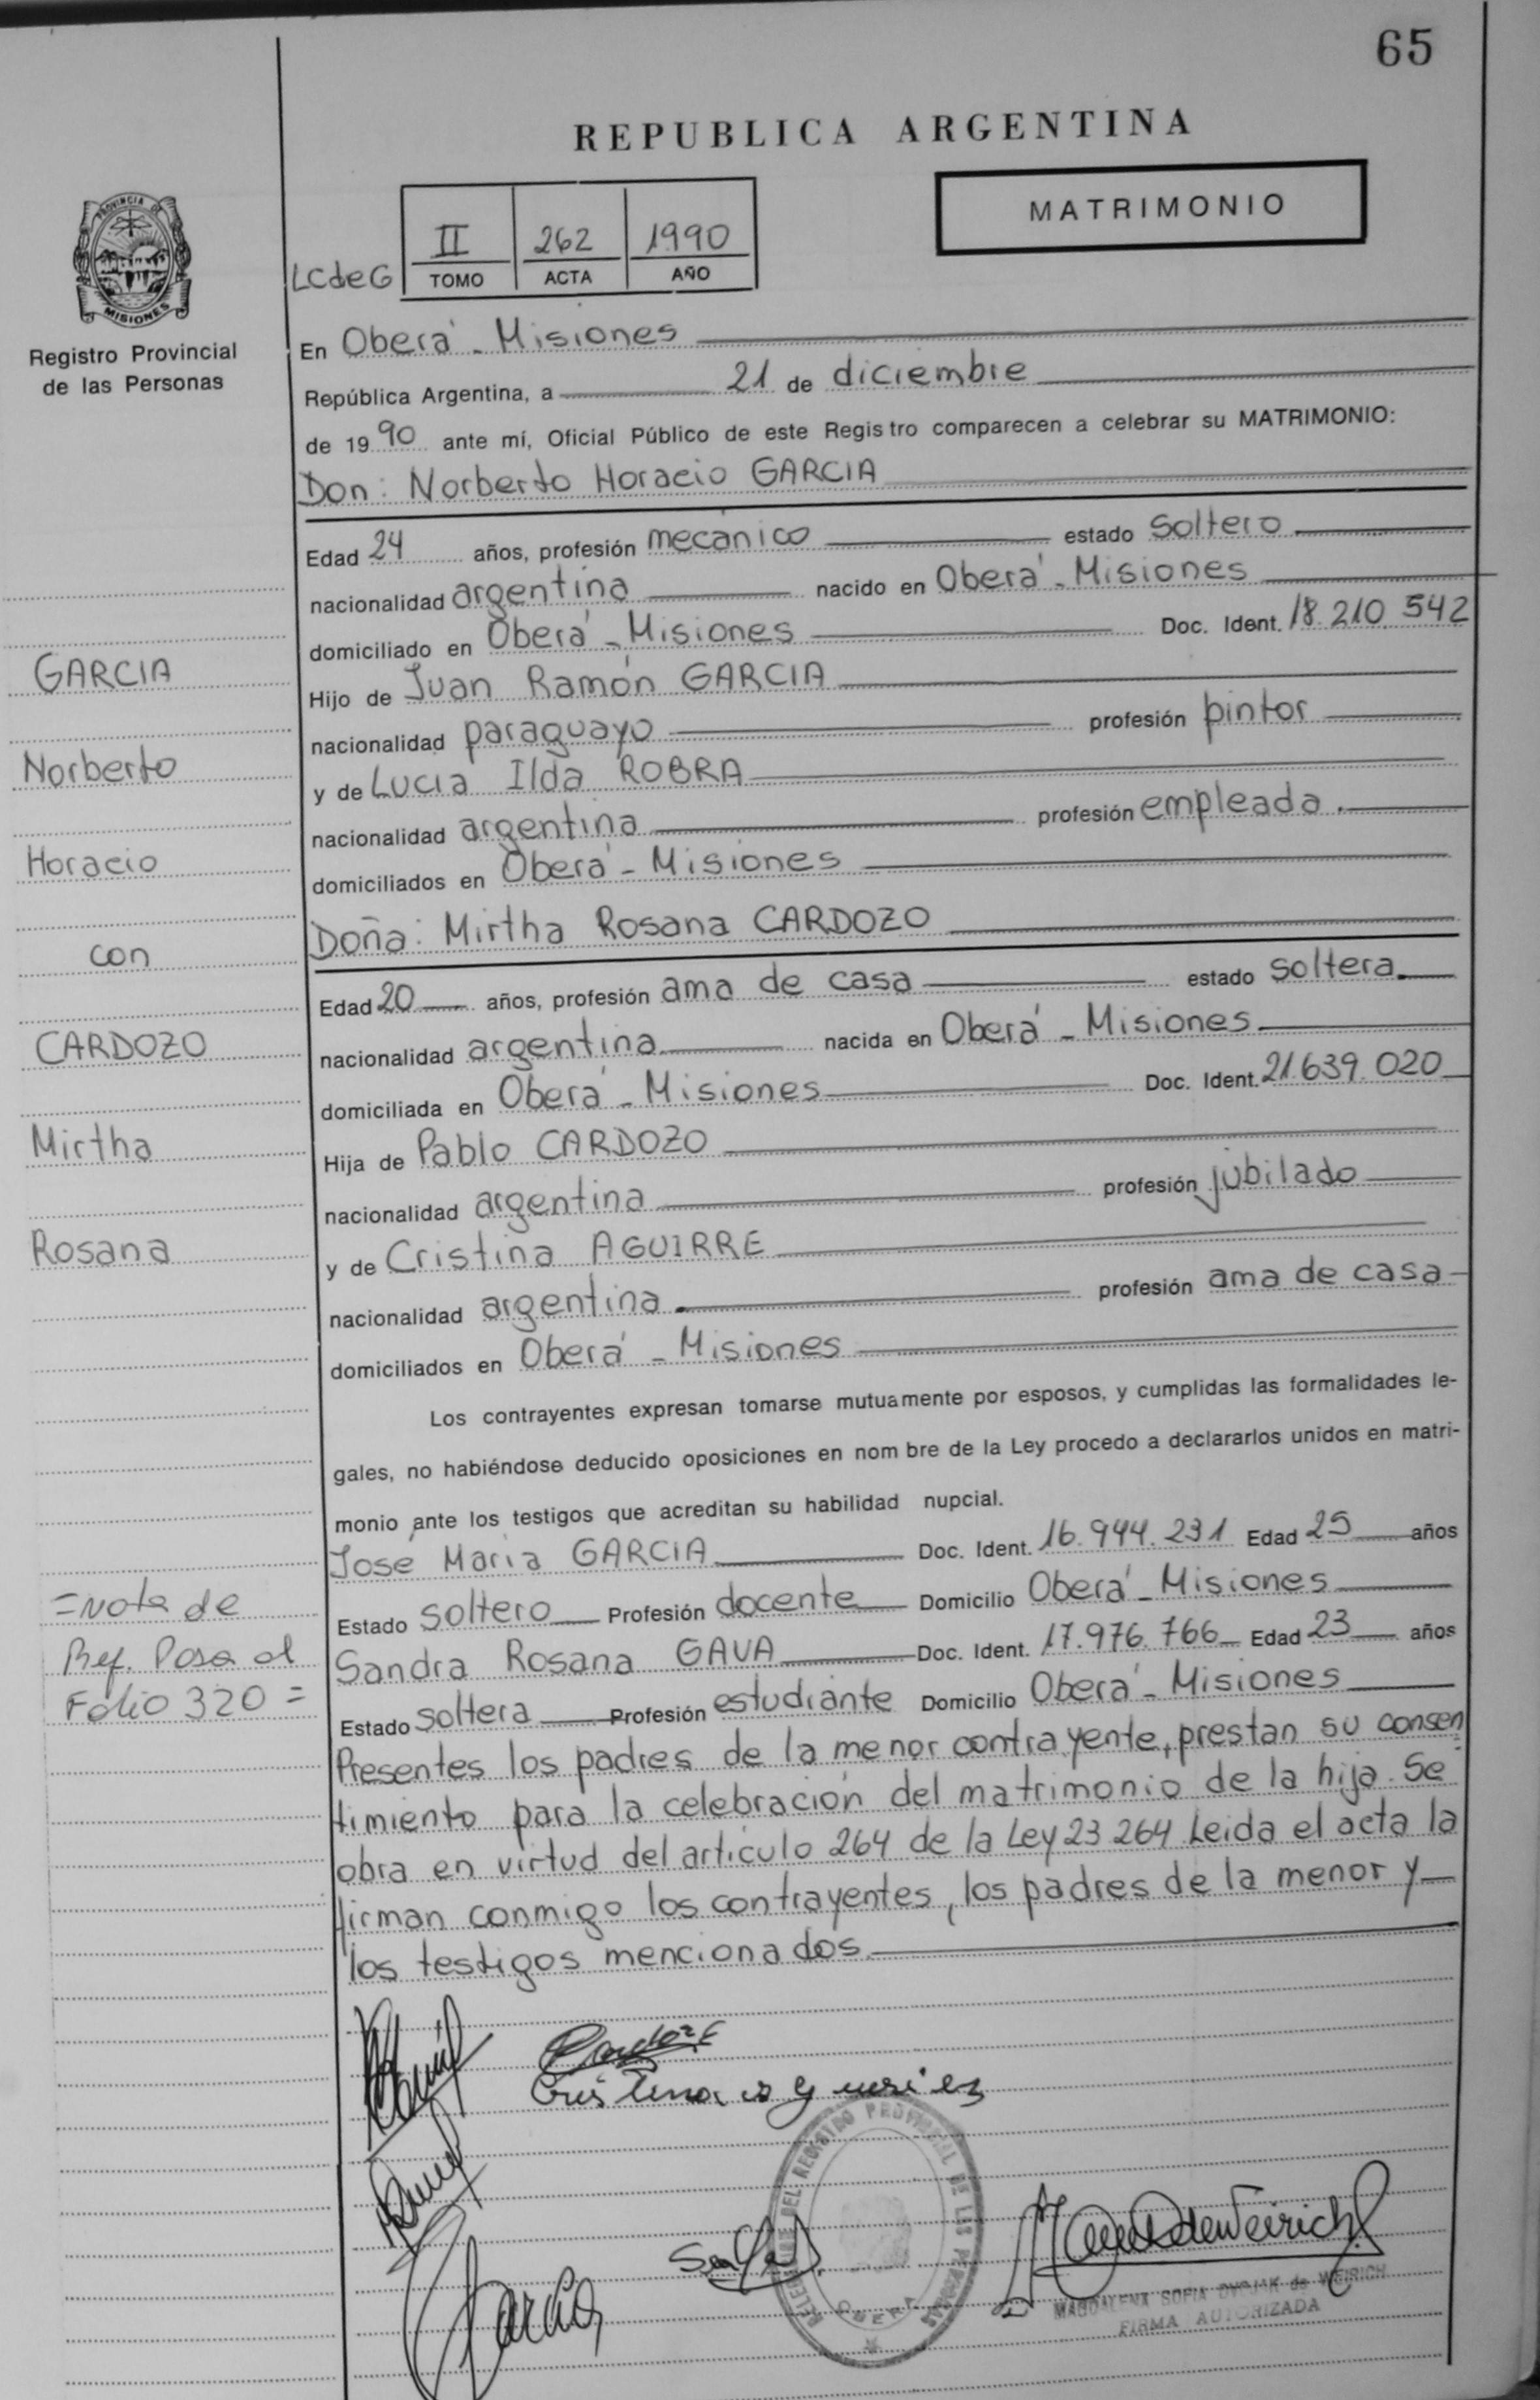 65
REPUBLICA ARGENTINA
MATRIMONIO
PROVINCIA DE
MISIONES
Registro Provincial
de las Personas
LCdeG
II 262 1990
TOMO ACTA AÑO
En Oberá - Misiones
República Argentina, a 21 de diciembre
de 1990 ante mí, Oficial Público de este Registro comparecen a celebrar su MATRIMONIO:
Don: Norberto Horacio GARCIA
Edad 24 años, profesión mecánico estado soltero
nacionalidad argentina nacido en Oberá - Misiones
domiciliado en Oberá - Misiones Doc. Ident. 18.210.542
Hijo de Juan Ramón GARCIA
nacionalidad paraguayo profesión pintor
y de Lucia Ilda ROBRA
nacionalidad argentina profesión empleada.
domiciliados en Oberá - Misiones
Doña: Mirtha Rosana CARDOZO
Edad 20 años, profesión ama de casa estado soltera
nacionalidad argentina nacida en Oberá - Misiones
domiciliada en Oberá - Misiones Doc. Ident. 21.639.020
Hija de Pablo CARDOZO
nacionalidad argentina profesión jubilado
y de Cristina AGUIRRE
nacionalidad argentina profesión ama de casa
domiciliados en Oberá - Misiones
Los contrayentes expresan tomarse mutuamente por esposos, y cumplidas las formalidades le-
gales, no habiéndose deducido oposiciones en nombre de la Ley procedo a declararlos unidos en matri-
monio ante los testigos que acreditan su habilidad nupcial.
José Maria GARCIA Doc. Ident. 16.944.231 Edad 25 años
Estado soltero Profesión docente Domicilio Oberá - Misiones
Sandra Rosana GAVA Doc. Ident. 17.976.766 Edad 23 años
Estado soltera Profesión estudiante Domicilio Oberá - Misiones
Presentes los padres de la menor contrayente, prestan su consen
timiento para la celebración del matrimonio de la hija. Se
obra en virtud del artículo 264 de la Ley 23 264 Leida el acta la
firman conmigo los contrayentes, los padres de la menor y
los testigos mencionados.
GARCIA
Norberto
Horacio
con
CARDOZO
Mirtha
Rosana
=Nota de
Ref. Pasa al
Folio 320=
DEL REGISTRO PROVINCIAL DE LAS PERSONAS
OBERA
MAGDALENA SOFIA DVOJAK de WEIRICH
FIRMA AUTORIZADA